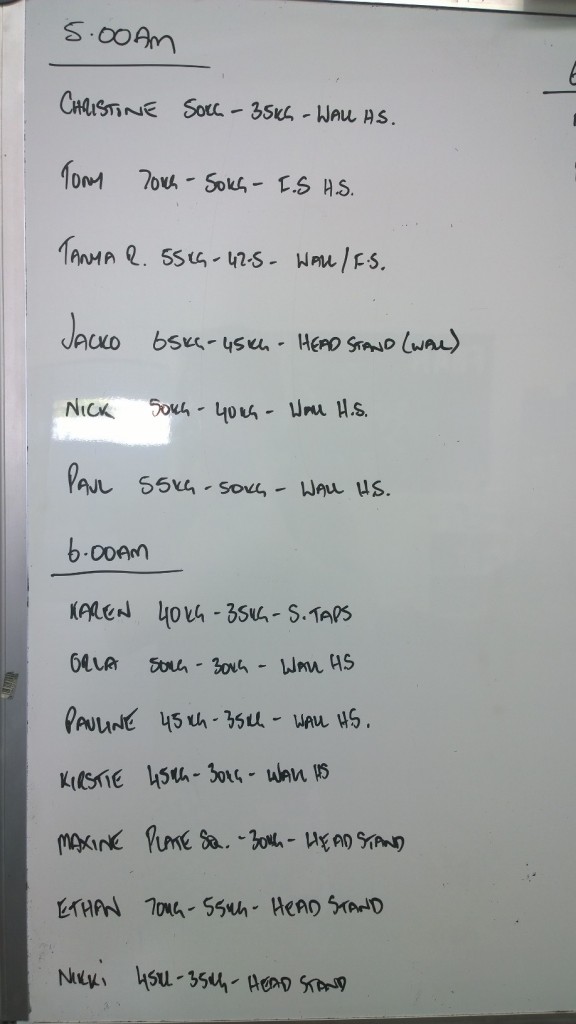 5.00AM
CHRISTINE 50KG - 35KG - WALL H.S.
TONY 70KG - 50KG - F.S H.S.
TANYA R. 55KG - 42.5 - WALL / F.S.
JACKO 65KG - 45KG - HEAD STAND (WALL)
NICK 50KG - 40KG - WALL H.S.
PAUL 55KG - 50KG - WALL HS.
6.00AM
KAREN 40KG - 35KG - S. TAPS
ORLA 50KG - 30KG - WALL HS
PAULINE 45KG - 35KG - WALL HS.
KIRSTIE 45KG - 30KG - WALL HS
MAXINE PLATE SQ. - 30KG - HEAD STAND
ETHAN 70KG - 55KG - HEAD STAND
NIKKI 45KG - 35KG - HEAD STAND